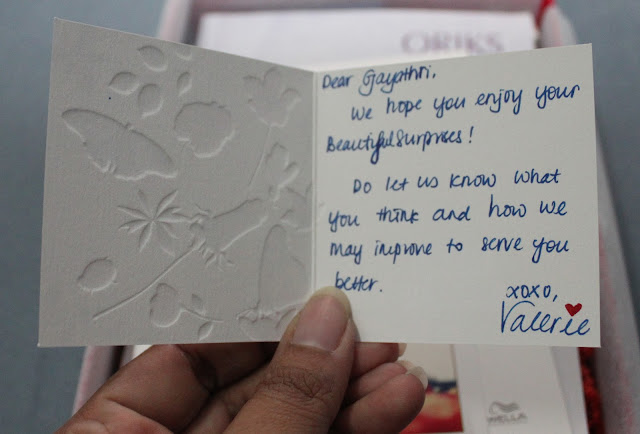 ORIKS
Dear Gayathri,
We hope you enjoy your
Beautiful Surprises!
Do let us know what
you think and how we
may improve to serve you
better.
xoxo,
Valerie
WELLA